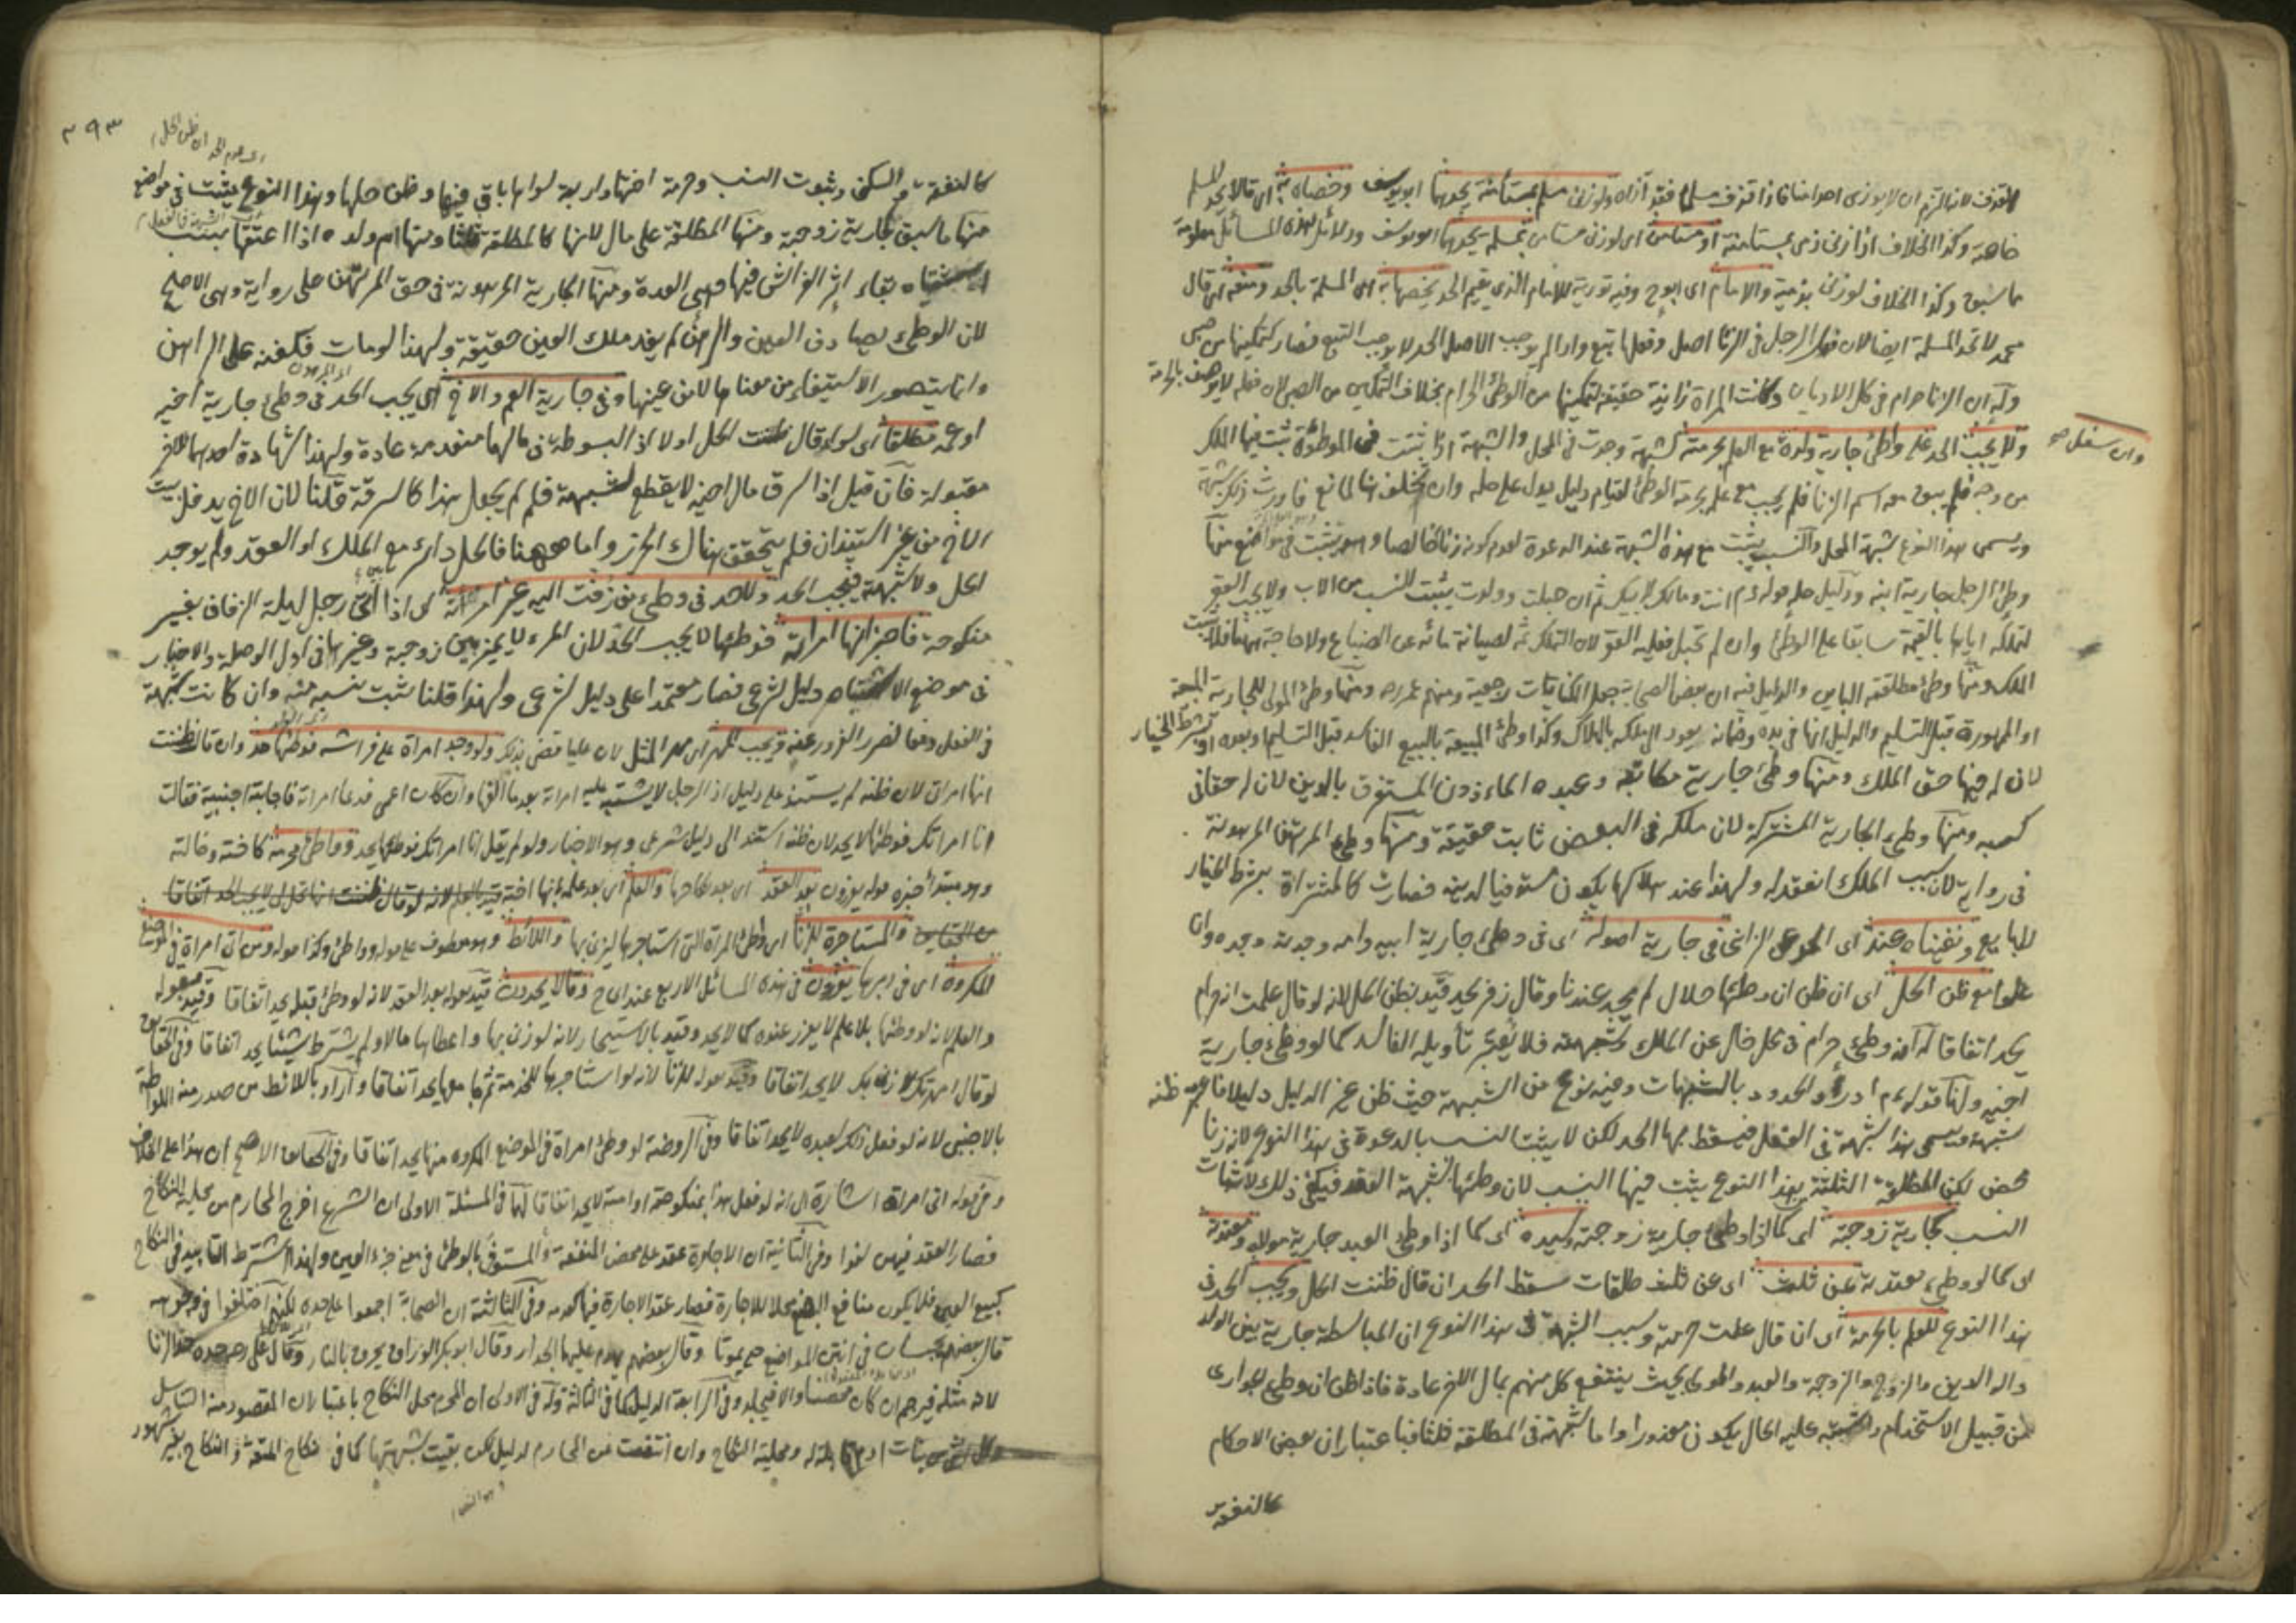 للقذف لانه التزم ان لا يوذى احدا منا فاذا قذف مسلما فقد آذاه ولو زنى مسلم بمستأمنة يحدهما ابو يوسف وخصاه به اى قالا يحد المسلم
خاصة وكذا الخلاف اذا زنى ذمى بمستامنة او مستامن اى لو زنى مستامن بمسلمة يحدهما ابو يوسف ودلائل هذه المسائل معلومة
ما سبق وكذا الخلاف لو زنى بذمية والامام اى ابو ح وفيه تورية للامام الذى يقيم الحد يخصها به اى المسلمة بالحد ومنعه اى قال
محمد لا تحد المسلمة ايضا لان فعل الرجل فى الزنا اصل وفعلها تبع واذا لم يوجب الاصل الحد لا يوجب التبع فصار كتمكينها من صبى
وله ان الزنا حرام فى كل الاديان وكانت المراة زانية حقيقة لتمكينها من الوطئ الحرام بخلاف التمكين من الصبى لان فعله لا يوصف بالحرمة
ولا يجب الحد على واطئ جارية ولده مع العلم بحرمته لشبهة وجدت فى المحل والشبهة اذا ثبتت فى الموطوئة ثبت فيها الملك
وان سفل صح
من وجه فلم يبق معه اسم الزنا فلم يجب مع علم بحرمة الوطئ لقيام دليل يدل على حله وان تخلف لمانع فاورث ذلك شبهة
ويسمى هذا النوع شبهة المحل والنسب يثبت مع هذه الشبهة عند الدعوة لعدم كونه زنا خالصا وهو يثبت فى مواضع منها
وطئ الرجل جارية ابنه ودليل حله قوله عم انت ومالك لابيك ثم ان حبلت وولدت يثبت النسب من الاب ولا يجب العقر
لتملكه اياها بالقيمة سابقا على الوطئ وان لم تحبل فعليه العقر لان التملك ثمه لصيانة مائه عن الضياع ولا حاجة ههنا فلا يثبت
الملك ومنها وطئ مطلقته الباين والدليل فيه ان بعض الصحابة جعل الكنايات رجعية ومنهم عمر رضه ومنها وطئ المولى للجارية المبيعة
او الممهورة قبل التسليم والدليل انها فى يده وضمانه يعود الى ملكه بالهلاك وكذا وطئ المبيعة بالبيع الفاسد قبل التسليم او بعده او بشرط الخيار
لان له فيها حق الملك ومنها وطئ جارية مكاتبه وعبده الماذون المستغرق بالدين لان له حقا فى
كسبه ومنها وطئ الجارية المشتركة لان ملكه فى البعض ثابت حقيقة ومنها وطئ المرتهن المرهونة
فى رواية لان سبب الملك انعقد له ولهذا عند هلاكها يكون مستوفيا لدينه فصارت كالمشتراة بشرط الخيار
للبايع ونفيناه اى الحد عن الزانى فى جارية اصوله اى فى وطئ جارية ابيه وامه وجدته وجده وان
علوا مع ظن الحل اى ان ظن ان وطئها حلال لم يحد عندنا وقال زفر يحد قيد بظن الحل لانه لو قال علمت انه حرام
يحد اتفاقا له انه وطئ حرام فى محل خال عن الملك وشبهته فلا يعتبر تأويله الفاسد كما لو وطئ جارية
اخيه ولنا قوله عم ادرؤا الحدود بالشبهات وفيه نوع من الشبهة حيث ظن غير الدليل دليلا فاعتبر ظنه
شبهة ويسمى هذا شبهة فى الفعل فيسقط بها الحد لكن لا يثبت النسب بالدعوة فى هذا النوع لانه زنا
محض لكن المطلقة الثلثة بهذا النوع يثبت فيها النسب لان وطئها بشبهة العقد فيكفى ذلك لاثبات
النسب كجارية زوجته اى كما اذا وطئ جارية زوجته وسيده اى كما اذا وطئ العبد جارية مولاه ومعتدته
اى كما لو وطئ معتدته عن ثلث اى عن ثلث طلقات سقط الحد ان قال ظننت الحل ويجب الحد فى
هذا النوع للعلم بالحرمة اى ان قال علمت حرمته وسبب الشبهة فى هذا النوع ان المباسطة جارية بين الولد
والوالدين والزوج والزوجة والعبد والمولى بحيث ينتفع كل منهم بمال الاخر عادة فاذا ظن ان وطئ الجوارى
من قبيل الاستخدام واشتبه عليه الحال يكون معذورا واما شبهته فى المطلقة ثلثا فباعتبار ان بعض الاحكام
كالنفقة
٣٩٣
اى عدم الحد ان ظن الحل
كالنفقة والسكنى وثبوت النسب وحرمة اختها واربعة سواها باق فيها وظن حلها وهذا النوع يثبت فى مواضع
منها ما سبق كجارية زوجته ومنها المطلقة على مال لانها كالمطلقة ثلثا ومنها ام ولده اذا اعتقها بسبب
بقاء اثر الفراش فيها وهى العدة ومنها الجارية المرهونة فى حق المرتهن على رواية وهى الاصح
لان الوطئ يصادف العين والرهن لم يفد ملك العين حقيقة ولهذا لو مات فكفنه على الراهن
وانما يتصور الاستيفاء من معناها لا من عينها وفى جارية العم والاخ اى يجب الحد فى وطئ جارية اخيه
او عمه مطلقا اى سواء قال ظننت الحل او لا اذ لا بسوطة فى مالهما منفردة عادة ولهذا شهادة احدهما للاخر
مقبولة فان قيل اذا سرق مال اخيه لا يقطع لشبهة فلم لم يجعل هذا كالسرقة قلنا لان الاخ يدخل بيت
الاخ من غير استيذان فلم يتحقق هناك الحرز واما ههنا فالحل دائر مع الملك او العقد ولم يوجد
الحل ولا شبهته فيجب الحد ولا حد فى وطئ من زفت اليه غير امرأته اى اذا اتى رجل ليلة الزفاف بغير
منكوحته فاخبر انها امرأته فوطئها لا يجب الحد لان المرء لا يميز بين زوجته وغيرها فى اول الوصلة والاخبار
فى موضع الاشتباه دليل شرعى فصار معتمدا على دليل شرعى ولهذا قلنا يثبت نسبه منه وان كانت شبهة
فى الفعل دفعا لضرر الغرور عنه ويجب المهر اى مهر المثل لان عليا قضى بذلك ولو وجد امرأة على فراشه فوطئها حد وان قال ظننت
انها امراتى لان ظنه لم يستند على دليل اذ الرجل لا يشتبه عليه امراته بعد ما الفها وان كان اعمى فدعا امراته فاجابته اجنبية فقالت
انا امراتك فوطئها لا يحد لان ظنه استند الى دليل شرعى وهو الاخبار ولو لم يقل انا امراتك فوطئها يحد وواطئ محرمه كاخته وخالته
وهو مبتدأ خبره قوله يعزرون بعد العقد اى بعد نكاحها والعلم اى بعد علمه بانها اخته
والمستاجرة للزنا اى وطئ المرأة التى استاجرها ليزنى بها واللائط وهو معطوف على قوله وواطئ وكذا قوله ومن اتى امرأة فى الموضع
المكروه اى فى دبرها يعزرون فى هذه المسائل الاربع عند اى ح وقالا يحدون قيد بقوله بعد العقد لانه لو وطئ قبله يحد اتفاقا وقيد بقوله
والعلم لانه لو وطئها بلا علم لا يعزر عنده كما لا يحد وقيد بالاستيجار لانه لو زنى بها واعطاها مالا ولم يشترط شيئا يحد اتفاقا وفى الحقايق
لو قال امهرتك لازنى بك لا يحد اتفاقا وقيد بقوله للزنا لانه لو استاجرها للخدمة ثم جامعها يحد اتفاقا واراد باللائط من صدر منه اللواطة
بالاجنبى لانه لو فعل ذلك بعبده لا يحد اتفاقا وفى الروضة لو وطئ امراة فى الموضع المكروه منها يحد اتفاقا وفى الحقايق الاصح ان هذا على الخلاف
وفى قوله اتى امراة اشارة الى انه لو فعل هذا بمنكوحته او امته لا يحد اتفاقا لهما فى المسئلة الاولى ان الشرع اخرج المحارم من محلية النكاح
فصار العقد فيهن لغوا وفى الثانية ان الاجارة عقد على محض المنفعة والمستوفى بالوطئ فى معنى جزء العين ولهذا شرط التابيد فى النكاح
كبيع العين فلا يكون منافع البضع محلا للاجارة فصار عقد الاجارة فيها كعدمه وفى الثالثة ان الصحابة اجمعوا على حده لكنهم اختلفوا فى وجوهه
قال بعضهم يحبسان فى انتن المواضع حتى يموتا وقال بعضهم يهدم عليهما الجدار وقال ابو بكر الوراق يحرق بالنار وقال على حده حد الزنا
لانه مثله فيرجم ان كان محصنا والا فيجلد وفى الرابعة الدليل كما فى الثالثة وله فى الاولى ان المحرم محل النكاح باعتبار ان المقصود منه التناسل
وكل انثى من بنات آدم قابلة له ومحلية النكاح وان انتفت من المحارم لدليل لكن بقيت شبهتها كما فى نكاح المتعة والنكاح بغير شهود